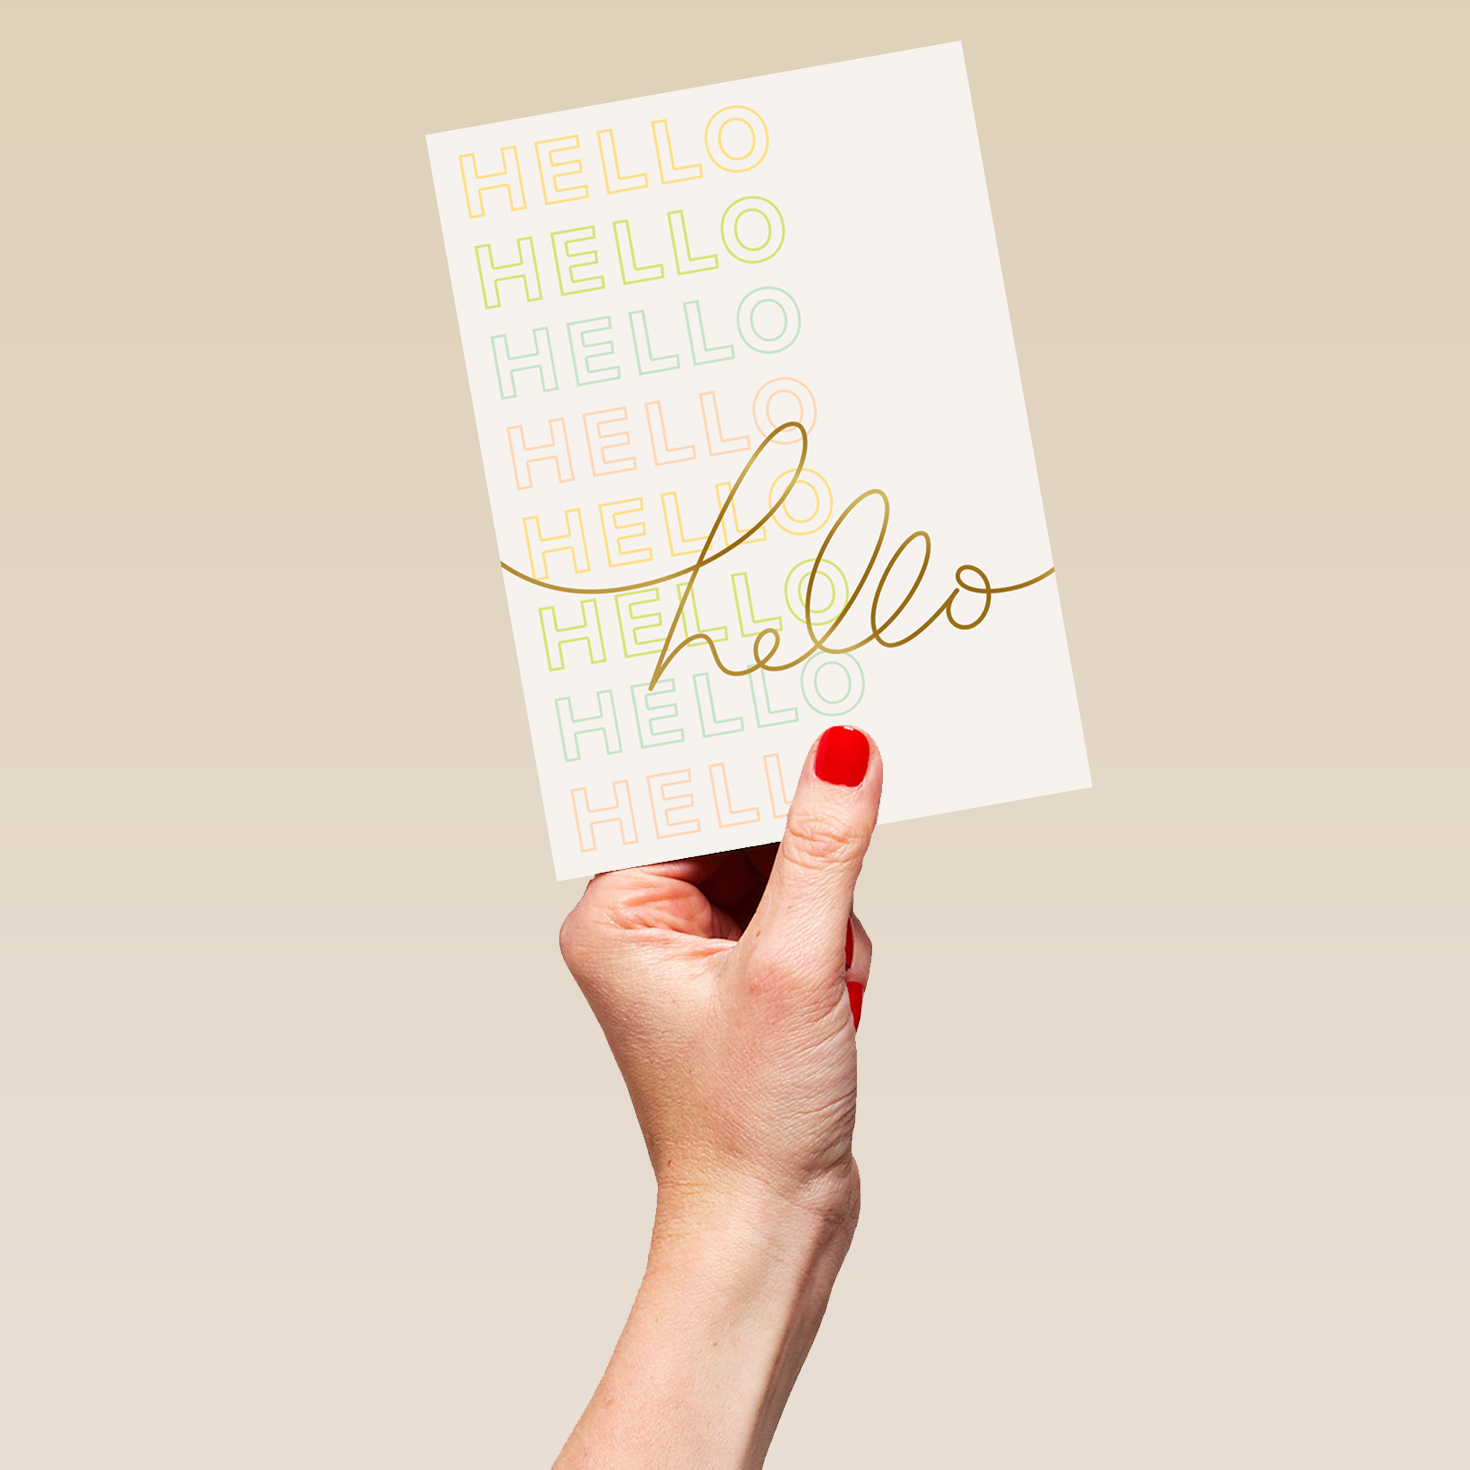 HELLO
HELLO
HELLO
HELLO
HELLO
hello
HELLO
HELLO
HELL